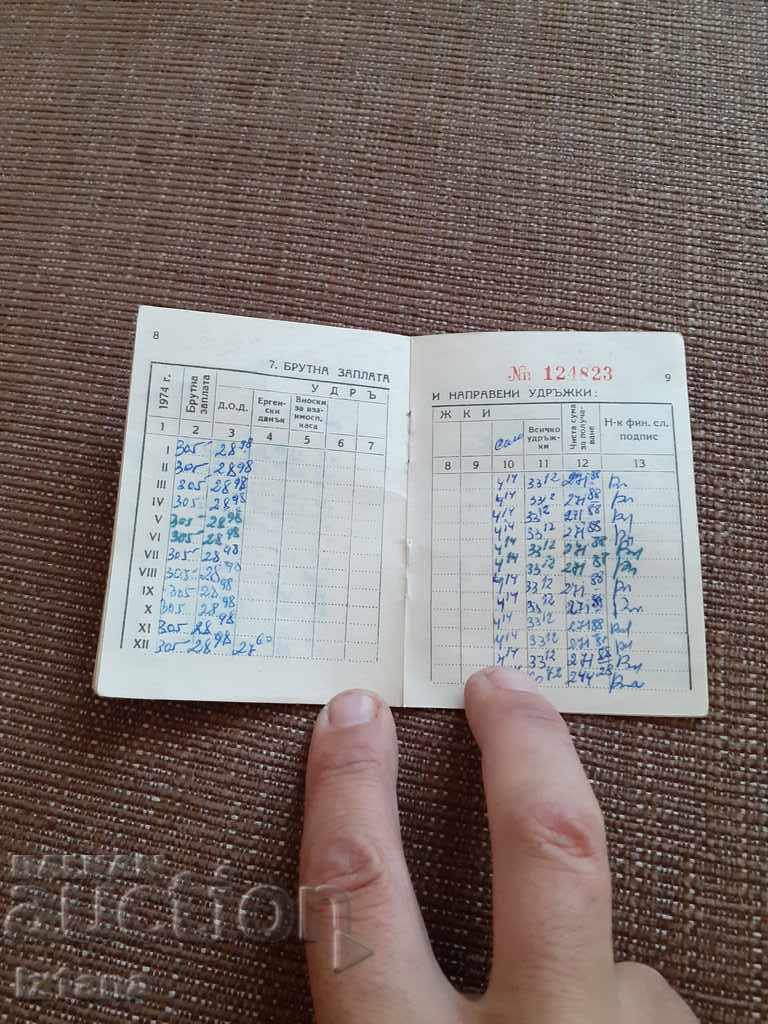 8
7. БРУТНА ЗАПЛАТА
1974 г.
Брутна заплата
У Д Р Ъ
Д.О.Д.
Ергенски данък
Вноски за взаимосп. каса
1 2 3 4 5 6 7
I 305 28 98
II 305 28 98
III 305 28 98
IV 305 28 98
V 305 28 98
VI 305 28 98
VII 305 28 98
VIII 305 28 98
IX 305 28 98
X 305 28 98
XI 305 28 98
XII 305 28 98 27 60
№ 124823
9
И НАПРАВЕНИ УДРЪЖКИ:
Ж К И
Всичко удръжки
Чиста сума за получаване
Н-к фин. сл. подпис
8 9 10 11 12 13
4 14 33 12 271 88
4 14 33 12 271 88
4 14 33 12 271 88
4 14 33 12 271 88
4 14 33 12 271 88
4 14 33 12 271 88
4 14 33 12 271 88
4 14 33 12 271 88
4 14 33 12 271 88
4 14 33 12 271 88
4 14 33 12 271 88
72 244 28
BALKAN
auction
Iziana